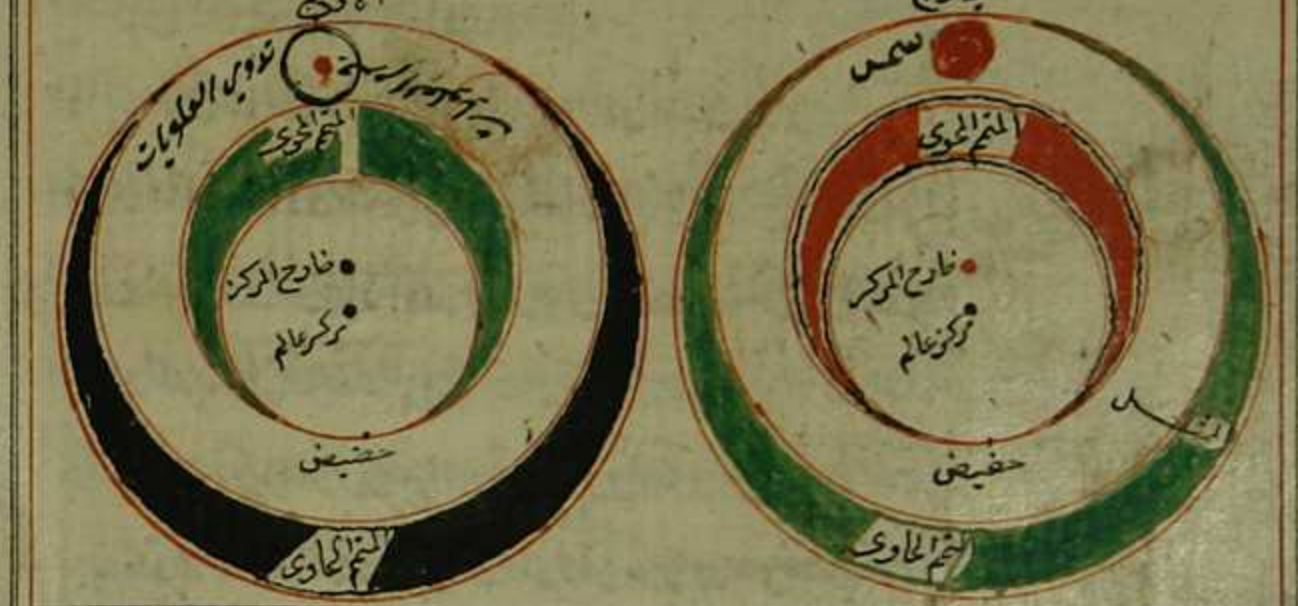 سمس
المتمم المحوى
خارج المركز
مركز عالم
حضيض
المتمم الحاوى
تداوير العلويات
المتمم المحوى
خارج المركز
مركز عالم
حضيض
المتمم الحاوى